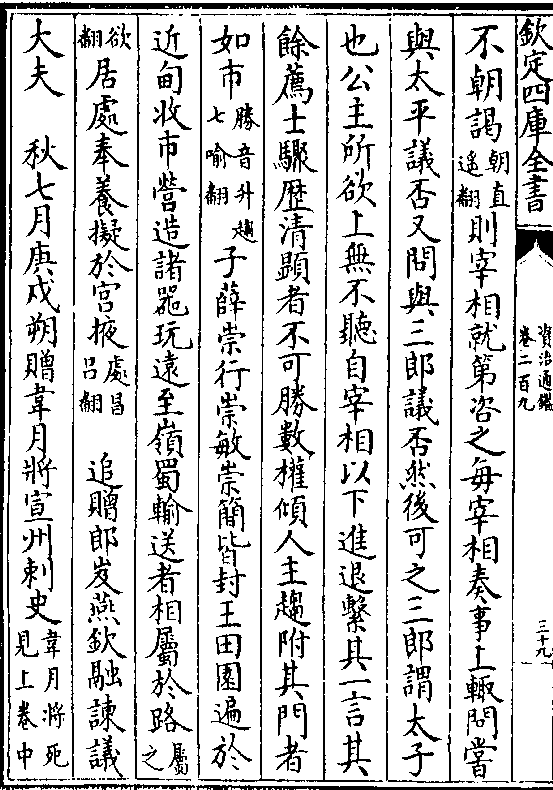 欽定四庫全書
資治通鑑
卷二百九
三十九
不朝謁朝直
遥翻則宰相就第咨之每宰相奏事上輙問嘗
與太平議否又問與三郎議否然後可之三郎謂太子
也公主所欲上無不聽自宰相以下進退繫其一言其
餘薦士驟歴清顯者不可勝數權傾人主趨附其門者
如市勝音升趨
七喻翻子薛崇行崇敏崇簡皆封王田園遍於
近甸收市營造諸噐玩遠至嶺蜀輸送者相屬於路屬
之
欲
翻居處奉養擬於宫掖處昌
吕翻追贈郎岌燕欽融諫議
大夫秋七月庚戍朔贈韋月將宣州刺史韋月將死
見上卷中